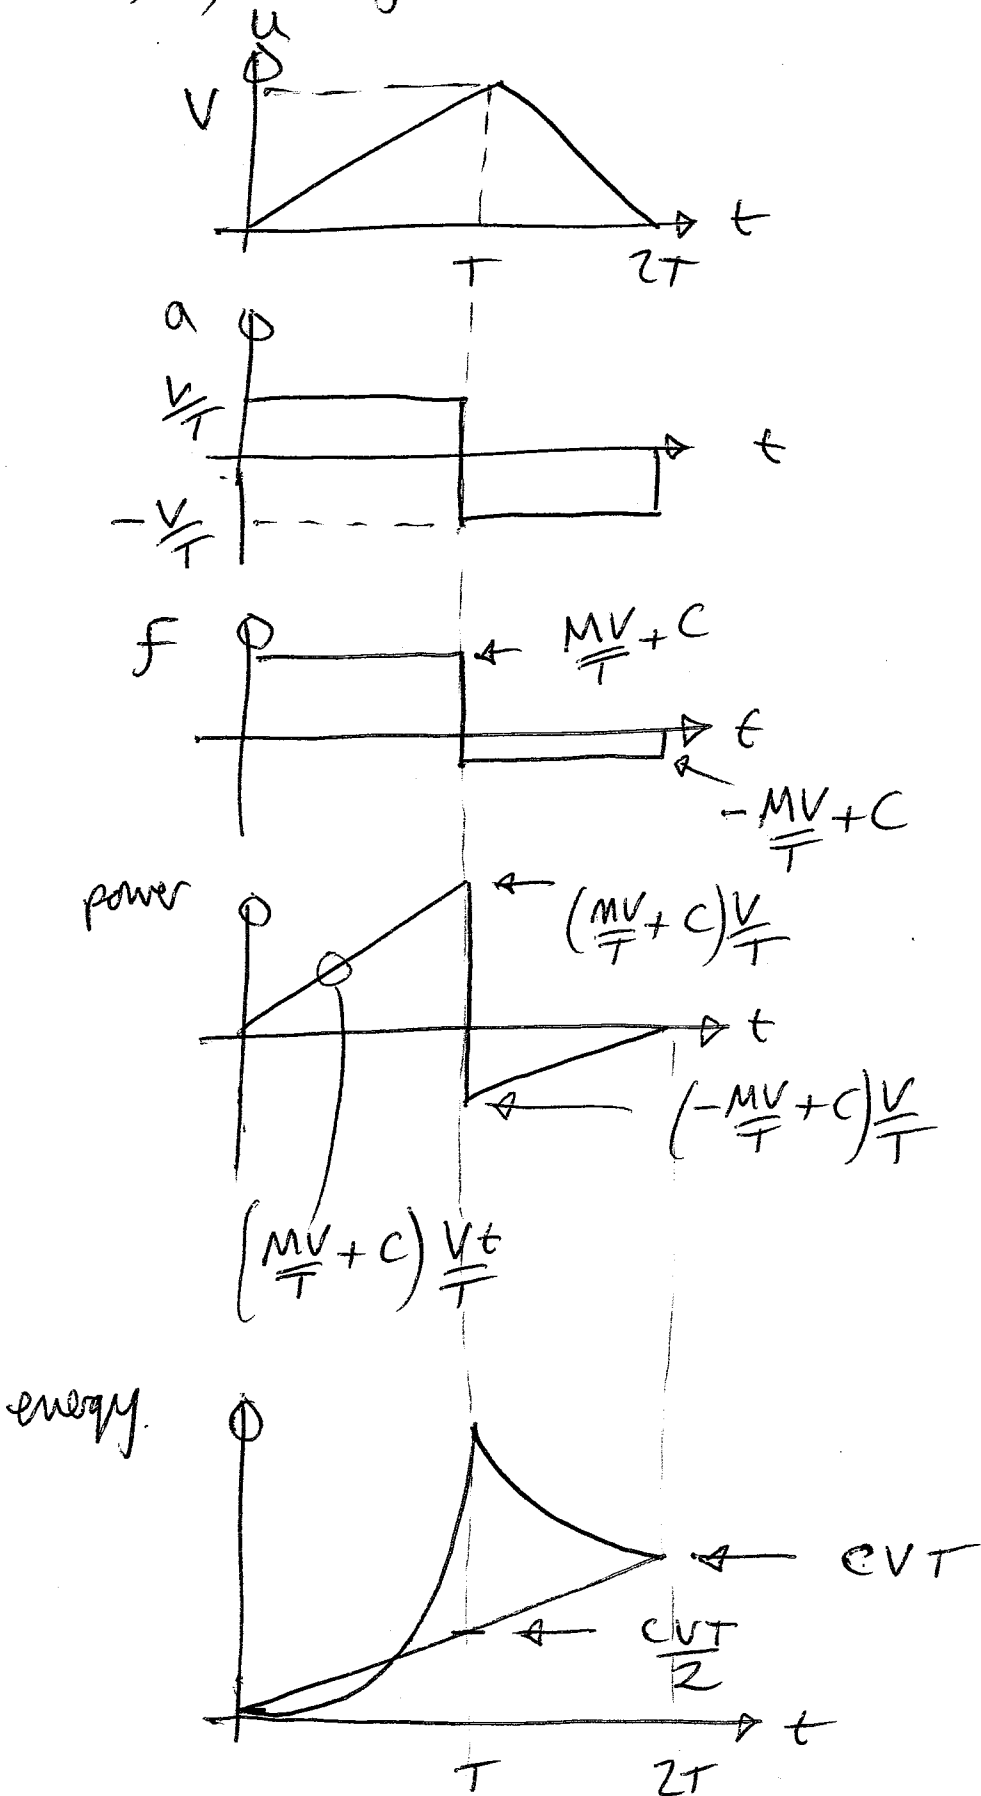 u
V
t
T 2T
a
V/T
t
-V/T
f
MV/T + C
t
-MV/T + C
power
(MV/T + C) V/T
t
(-MV/T + C) V/T
(MV/T + C) Vt/T
energy.
CVT
CVT/2
t
T 2T